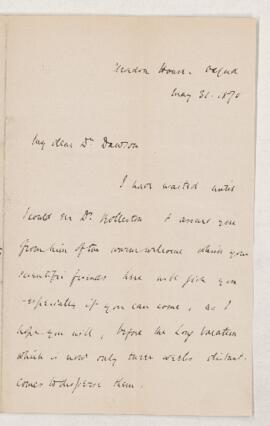 House. Oxford
May 31. 1870
My dear Dr Dawson
I have waited until
I could see Dr. Rolleston to assure you
from him of the warm welcome which your
scientific friends here will give you
especially if you can come, as I
hope you will, before the Long Vacation
which is now only three weeks distant
comes to disperse them.